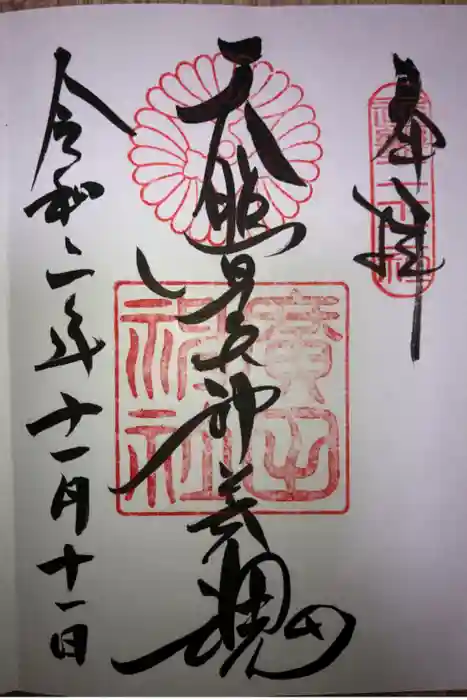 奉拝
天照皇大神荒魂
廣田
神社
令和二年十一月十一日